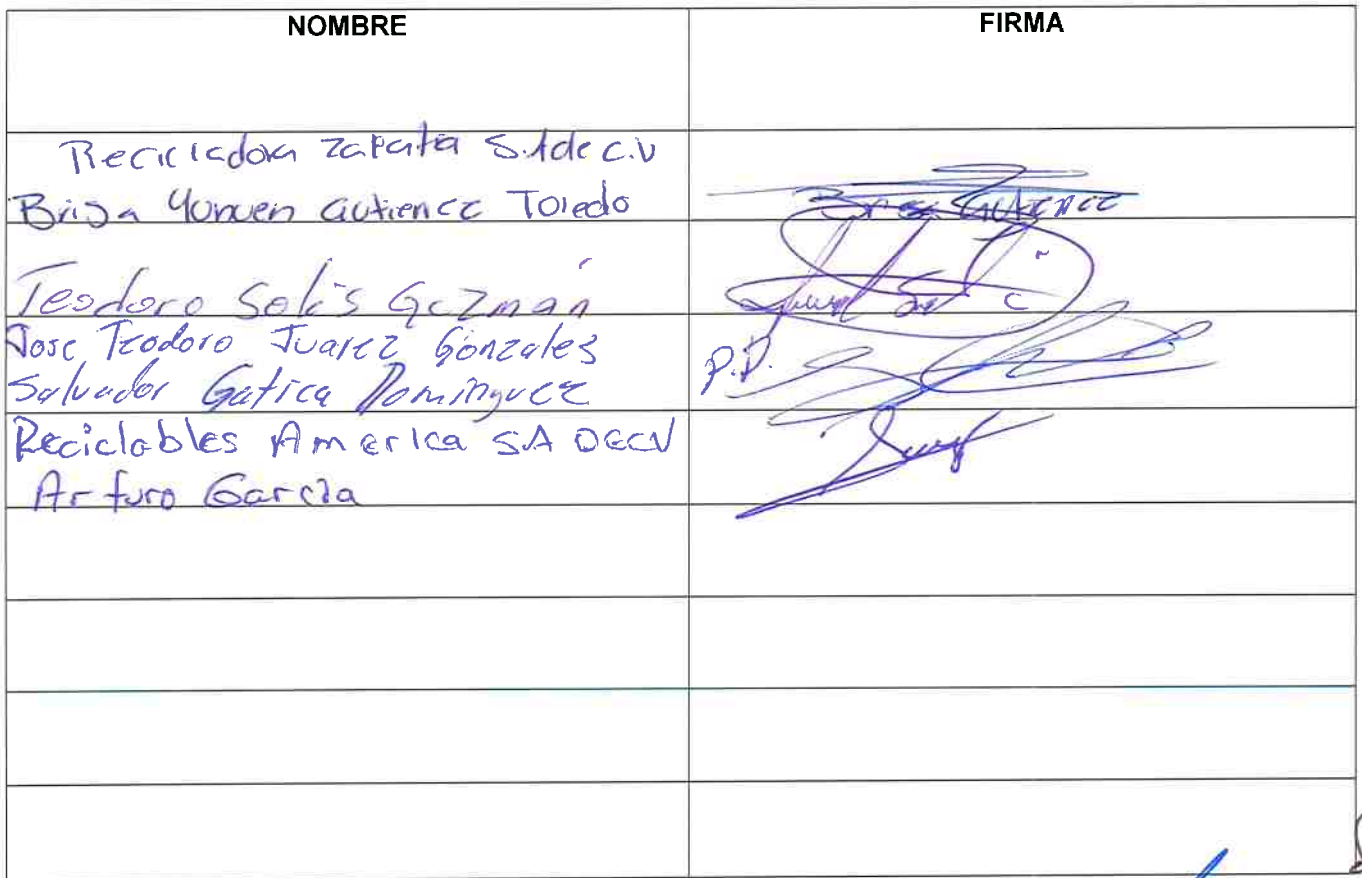 NOMBRE FIRMA
Recicladora Zapata S.A de C.V
Brisa Gutierrez Toledo Brisa Gutierrez
Teodoro Solís Guzmán
Jose Teodoro Juarez Gonzales
Salvador Gatica Dominguez P.P.
Reciclables America SA DECV
Arturo García